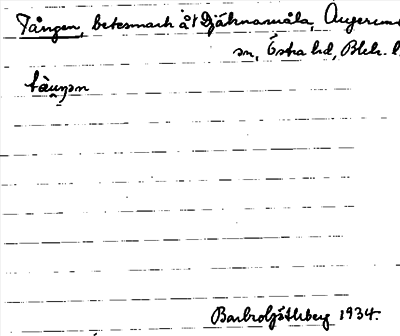 Tången, betesmark åt Djäknamåla, Augerums
sn, Östra hd, Blek. l
tàuŋən
Barbro Ljöthberg 1934.